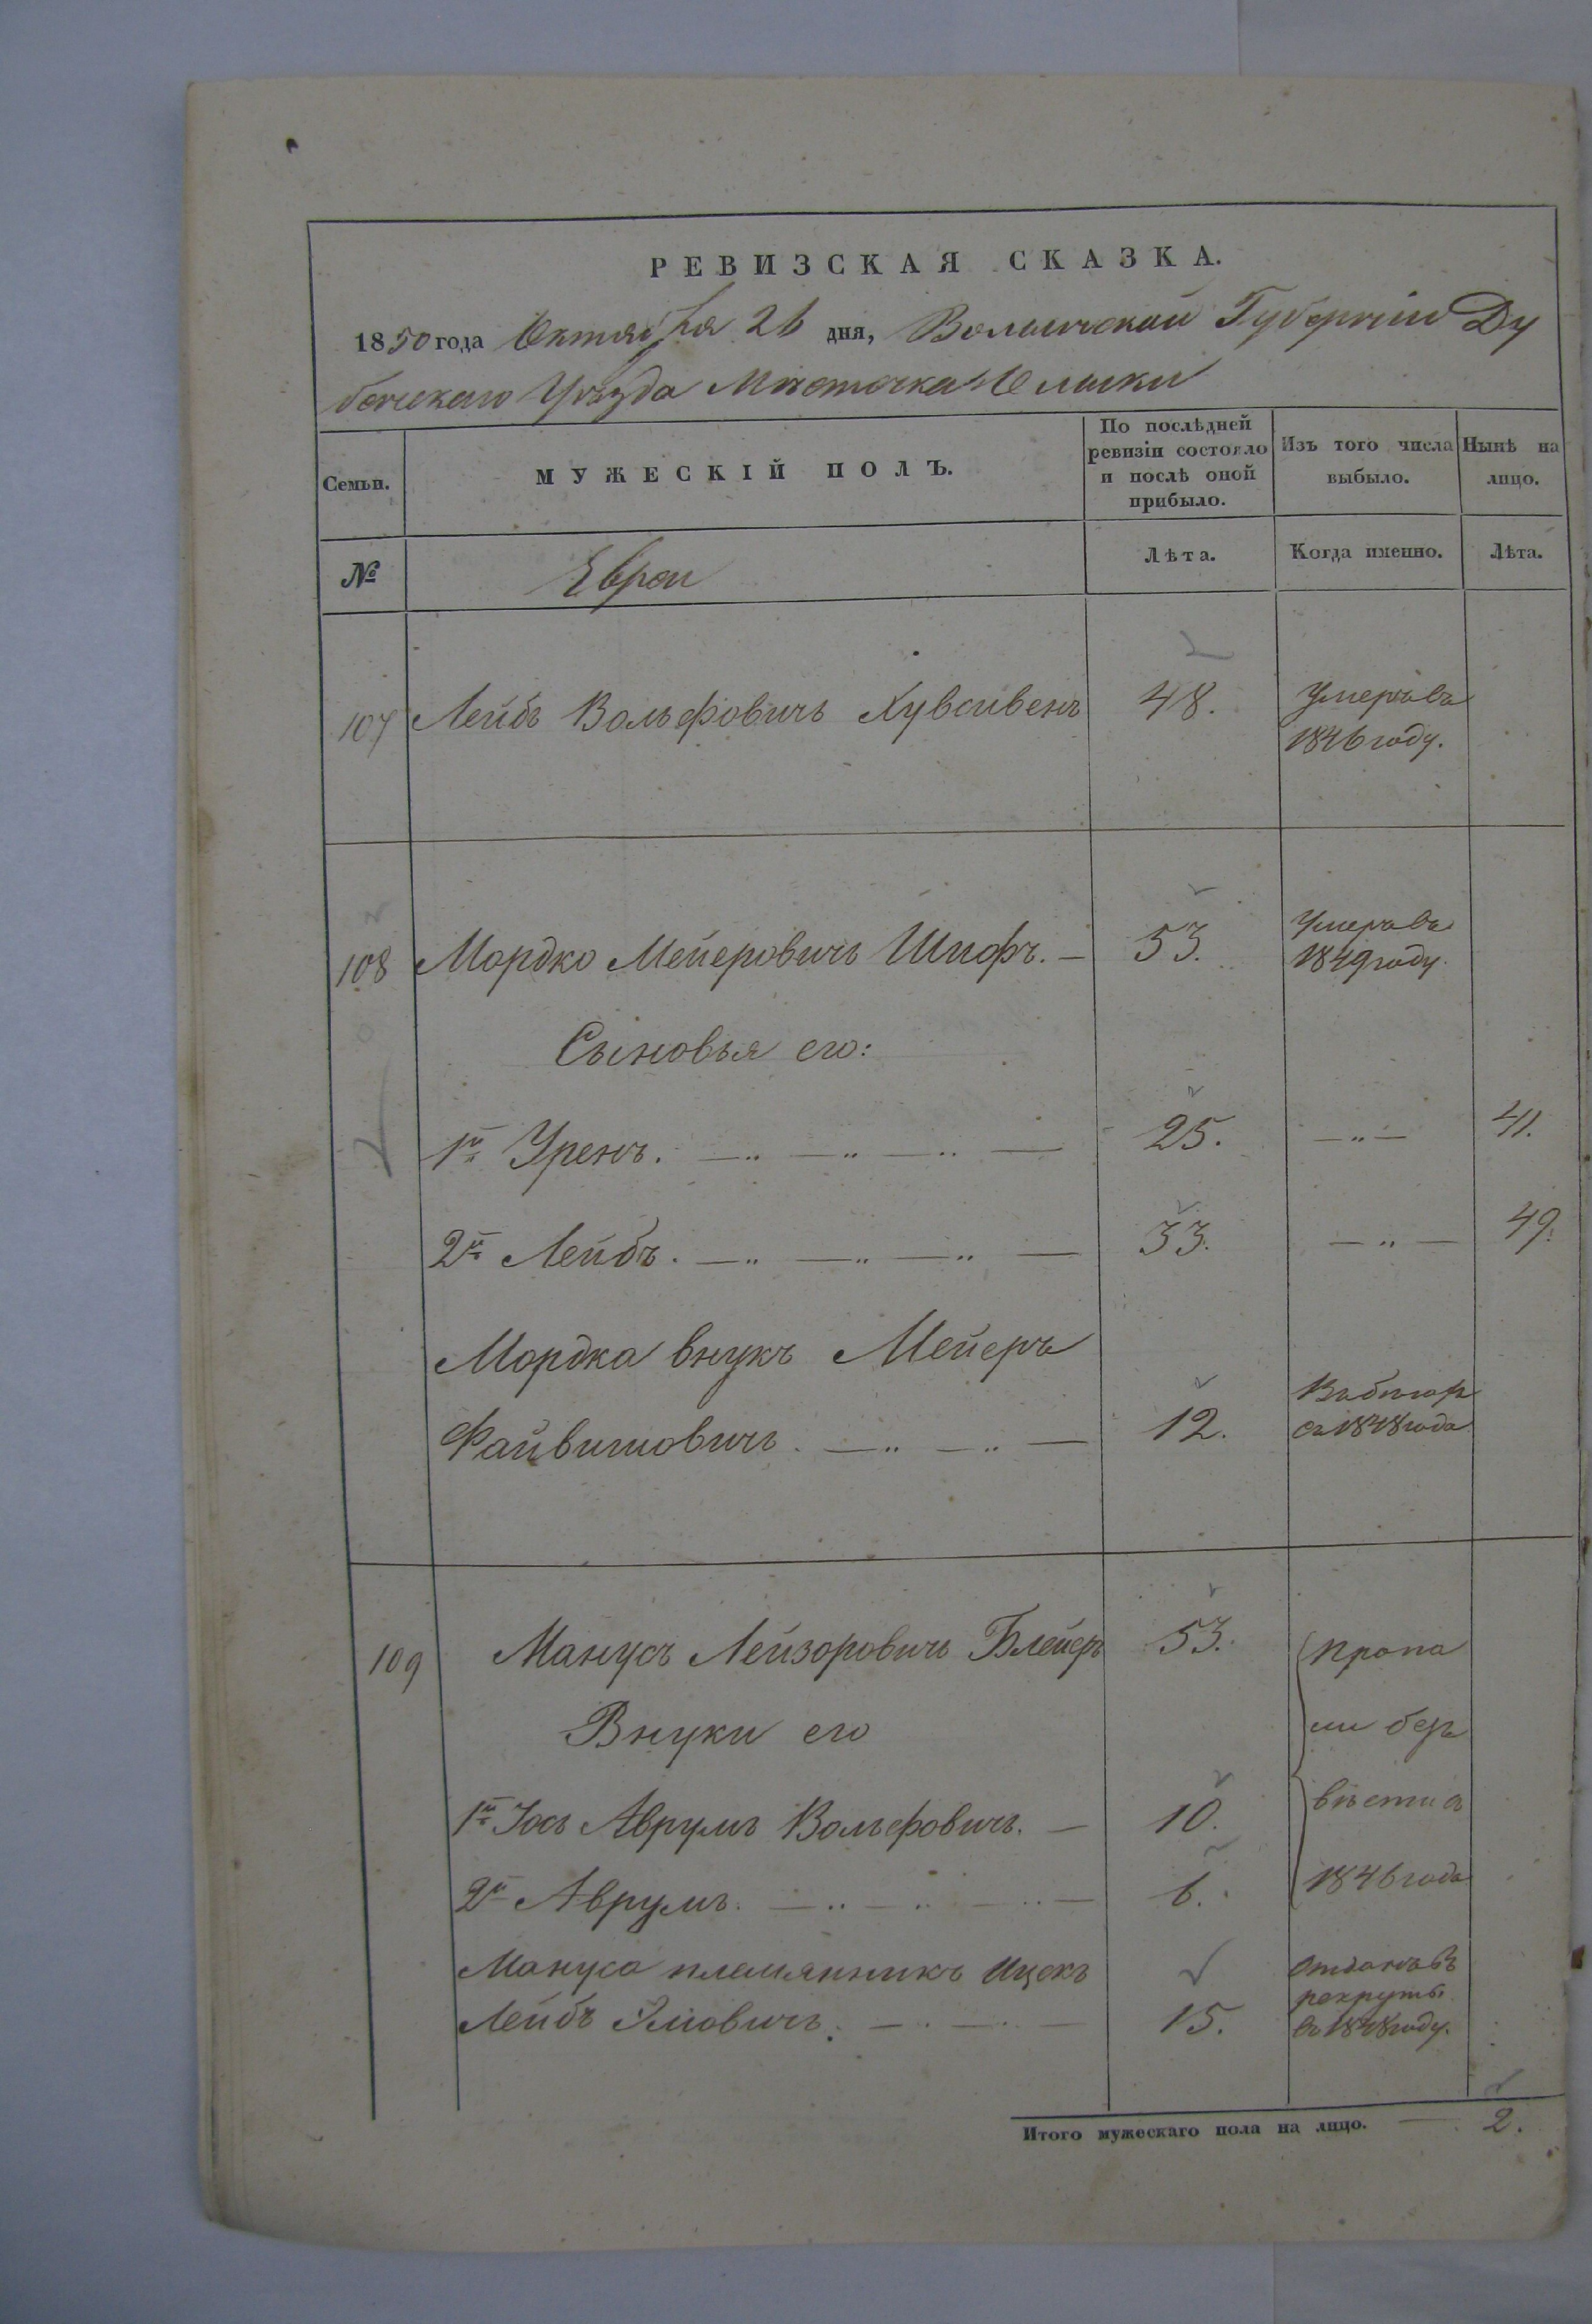 РЕВИЗСКАЯ СКАЗКА.
1850 года Октября 26 дня, Волынской Губернiи Ду
бенскаго Уѣзда Мѣстечка Олыки
Семьи.
МУЖЕСКIЙ ПОЛЪ.
По послѣдней ревизiи состояло и послѣ оной прибыло.
Изъ того числа выбыло.
Нынѣ на лицо.
№
Евреи
Лѣта.
Когда именно.
Лѣта.
107 Лейбъ Вольфовичъ 48. Умеръ въ
1846 году.
108 Мордко Мейеровичъ Шифъ. — 53. Умеръ въ
1849 году.
Сыновья его:
1й Уренъ. — „ — „ — „ — 25. — „ — 41.
2й Лейбъ. — „ — „ — „ — 33. — „ — 49.
Мордка внукъ Мейеръ
Файвишовичъ. — „ — „ — 12. Въ бѣгах
съ 1848 года
109 Манусъ Лейзоровичъ Блейеръ 53. пропа
Внуки его ли безъ
1й Іось Аврумъ Вольфовичъ. — 10. вѣсти съ
2й Аврумъ. — „ — „ — „ — 6. 1846 года
Мануса племянникъ Ицекъ отданъ въ
рекруты
Лейбъ 15. въ 1848 году.
Итого мужескаго пола на лицо. — 2.